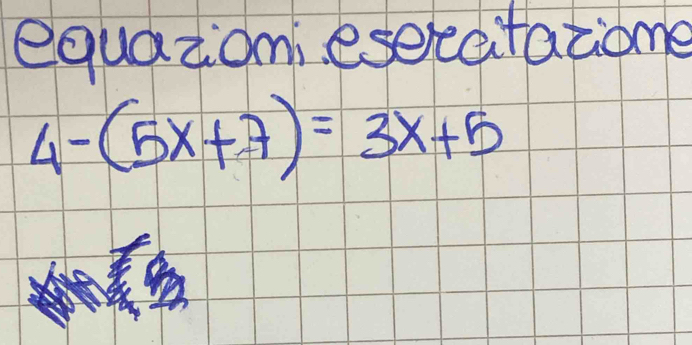 equazioni esercitazione
4-(5x+7)= 3x+5